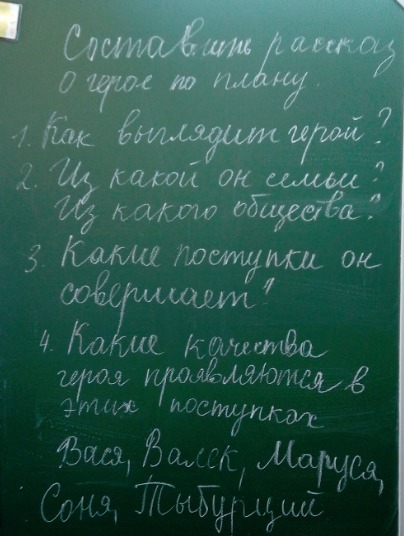 Составить рассказ
о герое по плану.
1. Как выглядит герой?
2. Из какой он семьи?
Из какого общества?
3. Какие поступки он
совершает?
4. Какие качества
героя проявляются в
этих поступках
Вася, Валек, Маруся,
Соня, Тыбурций